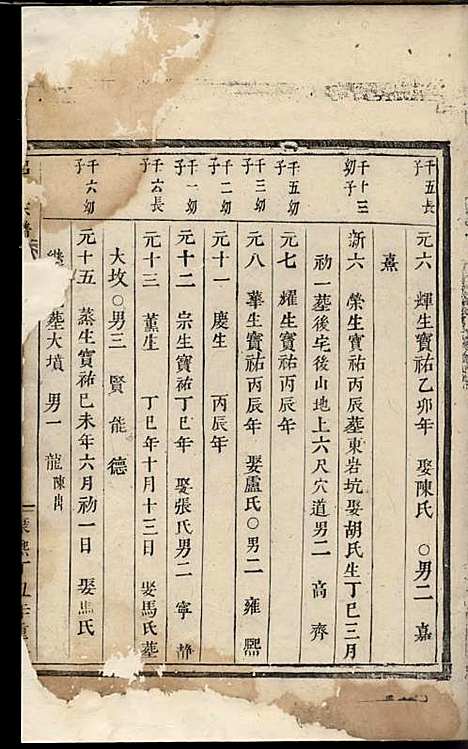 千五長子
元六 輝生寶祐乙卯年 娶陳氏 ○男二 嘉
熹
千十三幼子
新六 榮生寶祐丙辰墓東岩坑娶胡氏生丁巳三月
初一墓後宅後山地上六尺穴道男二 高 齊
千五幼子
元七 耀生寶祐丙辰年
千三幼子
元八 華生寶祐丙辰年 娶盧氏○男二 雍 熈
千二幼子
元十一 慶生 丙辰年
千一幼子
元十二 宗生寶祐丁巳年 娶張氏男二 寧 靜
千六長子
元十三 薰生 丁巳年十月十三日 娶馬氏墓
大坟○男三 賢 能 德
千六幼子
元十五 蒸生寶祐已未年六月初一日 娶馬氏
墓大墳 男一 龍 陳出